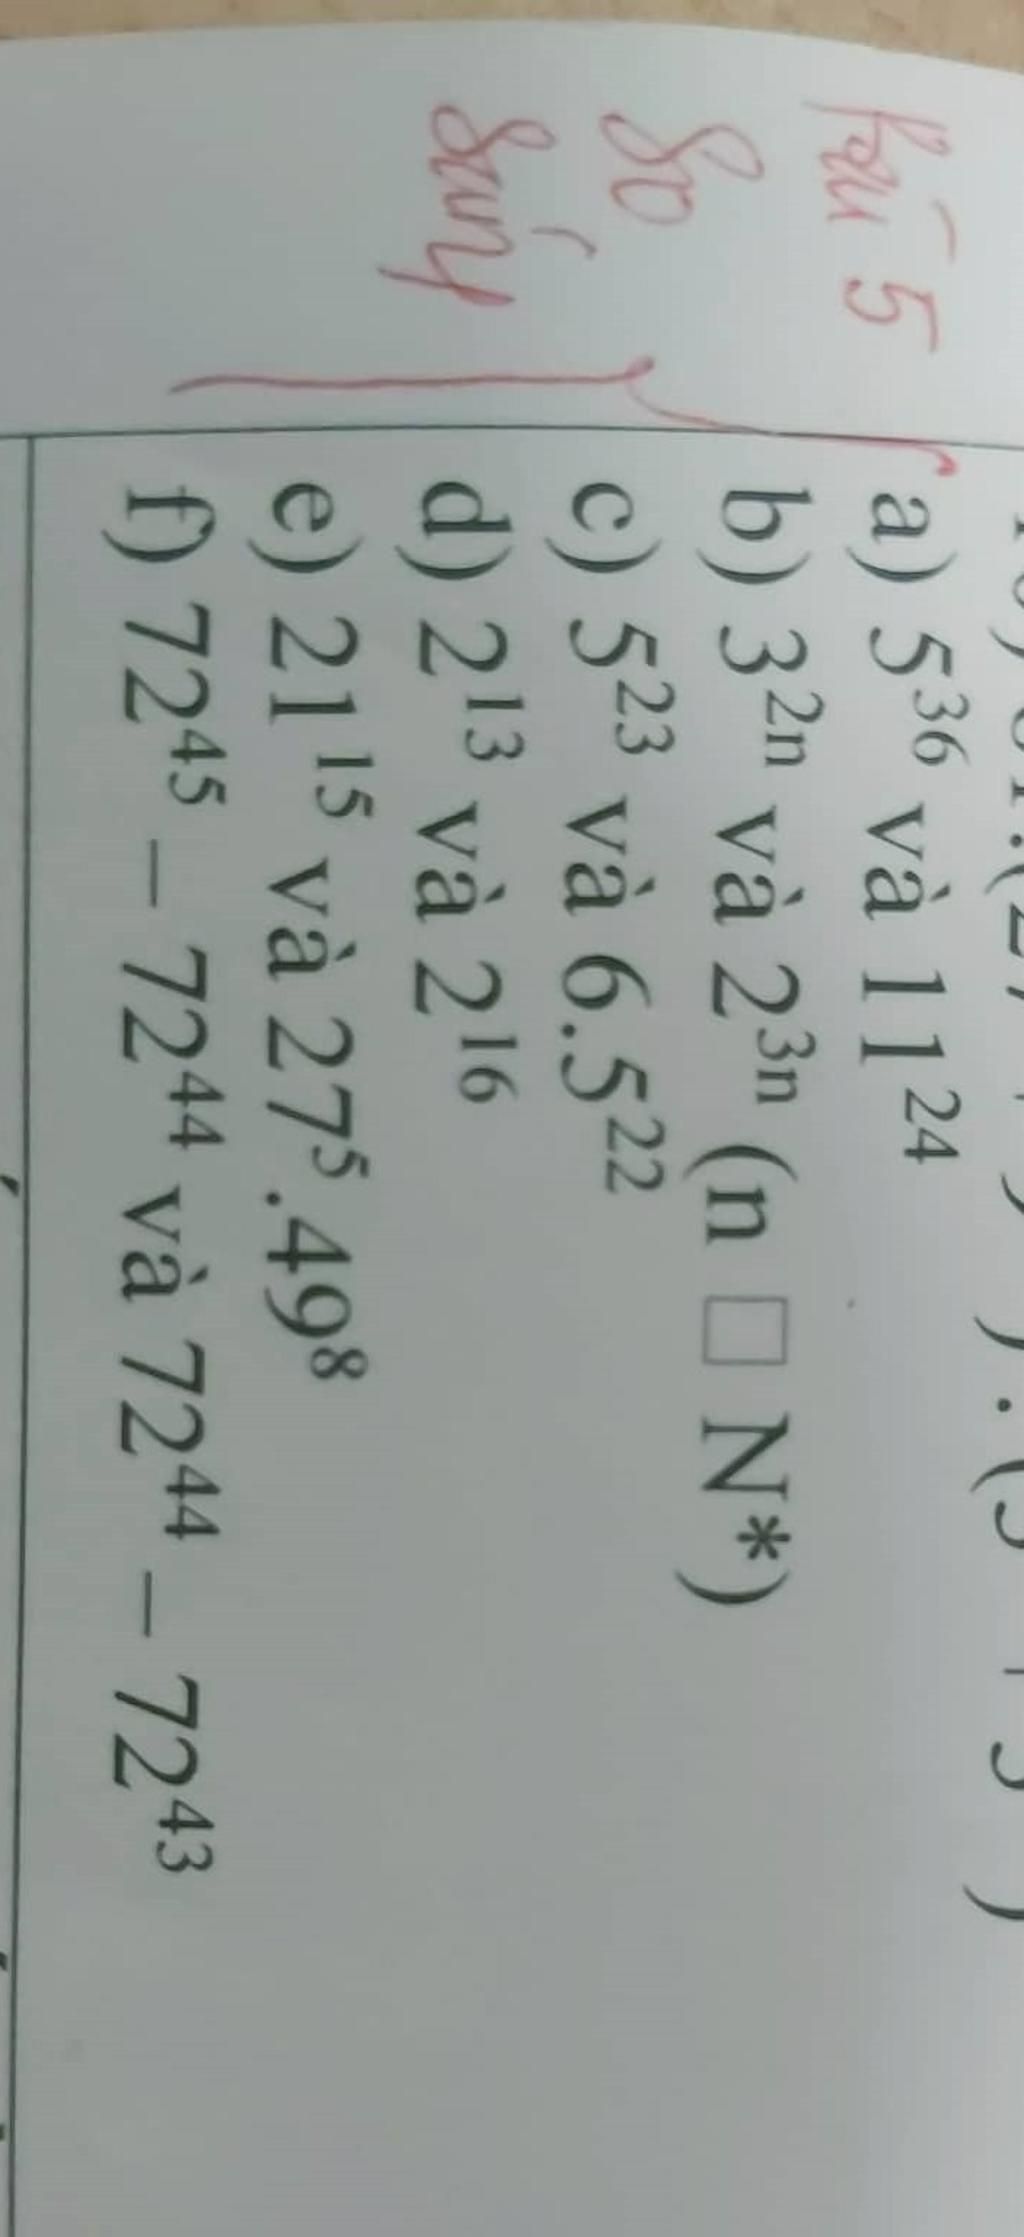 Bài 5
So
sánh
a) 5³⁶ và 11²⁴
b) 3²ⁿ và 2³ⁿ (n □ N*)
c) 5²³ và 6.5²²
d) 2¹³ và 2¹⁶
e) 21¹⁵ và 27⁵.49⁸
f) 72⁴⁵ – 72⁴⁴ và 72⁴⁴ – 72⁴³